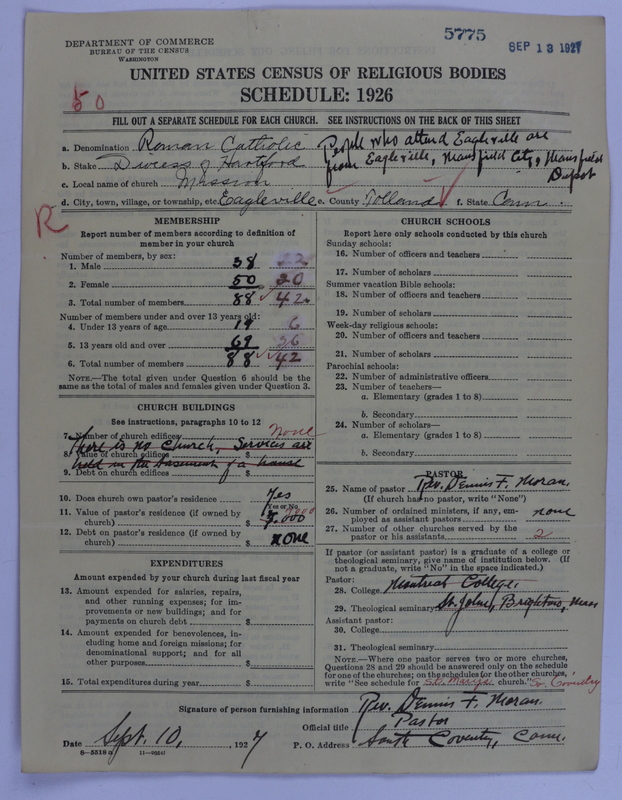 5775
SEP 13 1927
DEPARTMENT OF COMMERCE
BUREAU OF THE CENSUS
WASHINGTON
UNITED STATES CENSUS OF RELIGIOUS BODIES
SCHEDULE: 1926
50
FILL OUT A SEPARATE SCHEDULE FOR EACH CHURCH. SEE INSTRUCTIONS ON THE BACK OF THIS SHEET
a. Denomination Roman Catholic
People who attend Eagleville are
from Eagleville, Mansfield City, Mansfield
Depot
b. Stake Diocess of Hartford
c. Local name of church Mission
d. City, town, village, or township, etc. Eagleville e. County Tolland f. State Conn.
R
MEMBERSHIP
Report number of members according to definition of
member in your church
Number of members, by sex:
1. Male 38 22
2. Female 50 20
3. Total number of members 88 42
Number of members under and over 13 years old:
4. Under 13 years of age 19 6
5. 13 years old and over 69 36
6. Total number of members 88 42
NOTE.—The total given under Question 6 should be the
same as the total of males and females given under Question 3.
CHURCH BUILDINGS
See instructions, paragraphs 10 to 12
7. Number of church edifices None
There is no Church, Services are
8. Value of church edifices $
held in the basement of a house
9. Debt on church edifices $
10. Does church own pastor's residence Yes
(Yes or No)
11. Value of pastor's residence (if owned by
church) $ 7.000
12. Debt on pastor's residence (if owned by
church) $ none
EXPENDITURES
Amount expended by your church during last fiscal year
13. Amount expended for salaries, repairs,
and other running expenses; for im-
provements or new buildings; and for
payments on church debt $
14. Amount expended for benevolences, in-
cluding home and foreign missions; for
denominational support; and for all
other purposes $
15. Total expenditures during year $
CHURCH SCHOOLS
Report here only schools conducted by this church
Sunday schools:
16. Number of officers and teachers
17. Number of scholars
Summer vacation Bible schools:
18. Number of officers and teachers
19. Number of scholars
Week-day religious schools:
20. Number of officers and teachers
21. Number of scholars
Parochial schools:
22. Number of administrative officers
23. Number of teachers—
a. Elementary (grades 1 to 8)
b. Secondary
24. Number of scholars—
a. Elementary (grades 1 to 8)
b. Secondary
PASTOR
25. Name of pastor Rev. Dennis F. Moran.
(If church has no pastor, write "None")
26. Number of ordained ministers, if any, em-
ployed as assistant pastors none
27. Number of other churches served by the
pastor or his assistants 2
If pastor (or assistant pastor) is a graduate of a college or
theological seminary, give name of institution below. (If
not a graduate, write "No" in the space indicated.)
Pastor:
28. College Montreal College.
29. Theological seminary St. Johns, Brighton, Mass
Assistant pastor:
30. College
31. Theological seminary
NOTE.—Where one pastor serves two or more churches,
Questions 28 and 29 should be answered only on the schedule
for one of the churches; on the schedules for the other churches,
write "See schedule for St. Mary's church." So. Coventry
Signature of person furnishing information Rev. Dennis F. Moran.
Official title Pastor
Date Sept. 10, 1927
P. O. Address South Coventy, Conn.
8—5518a 11—9264l